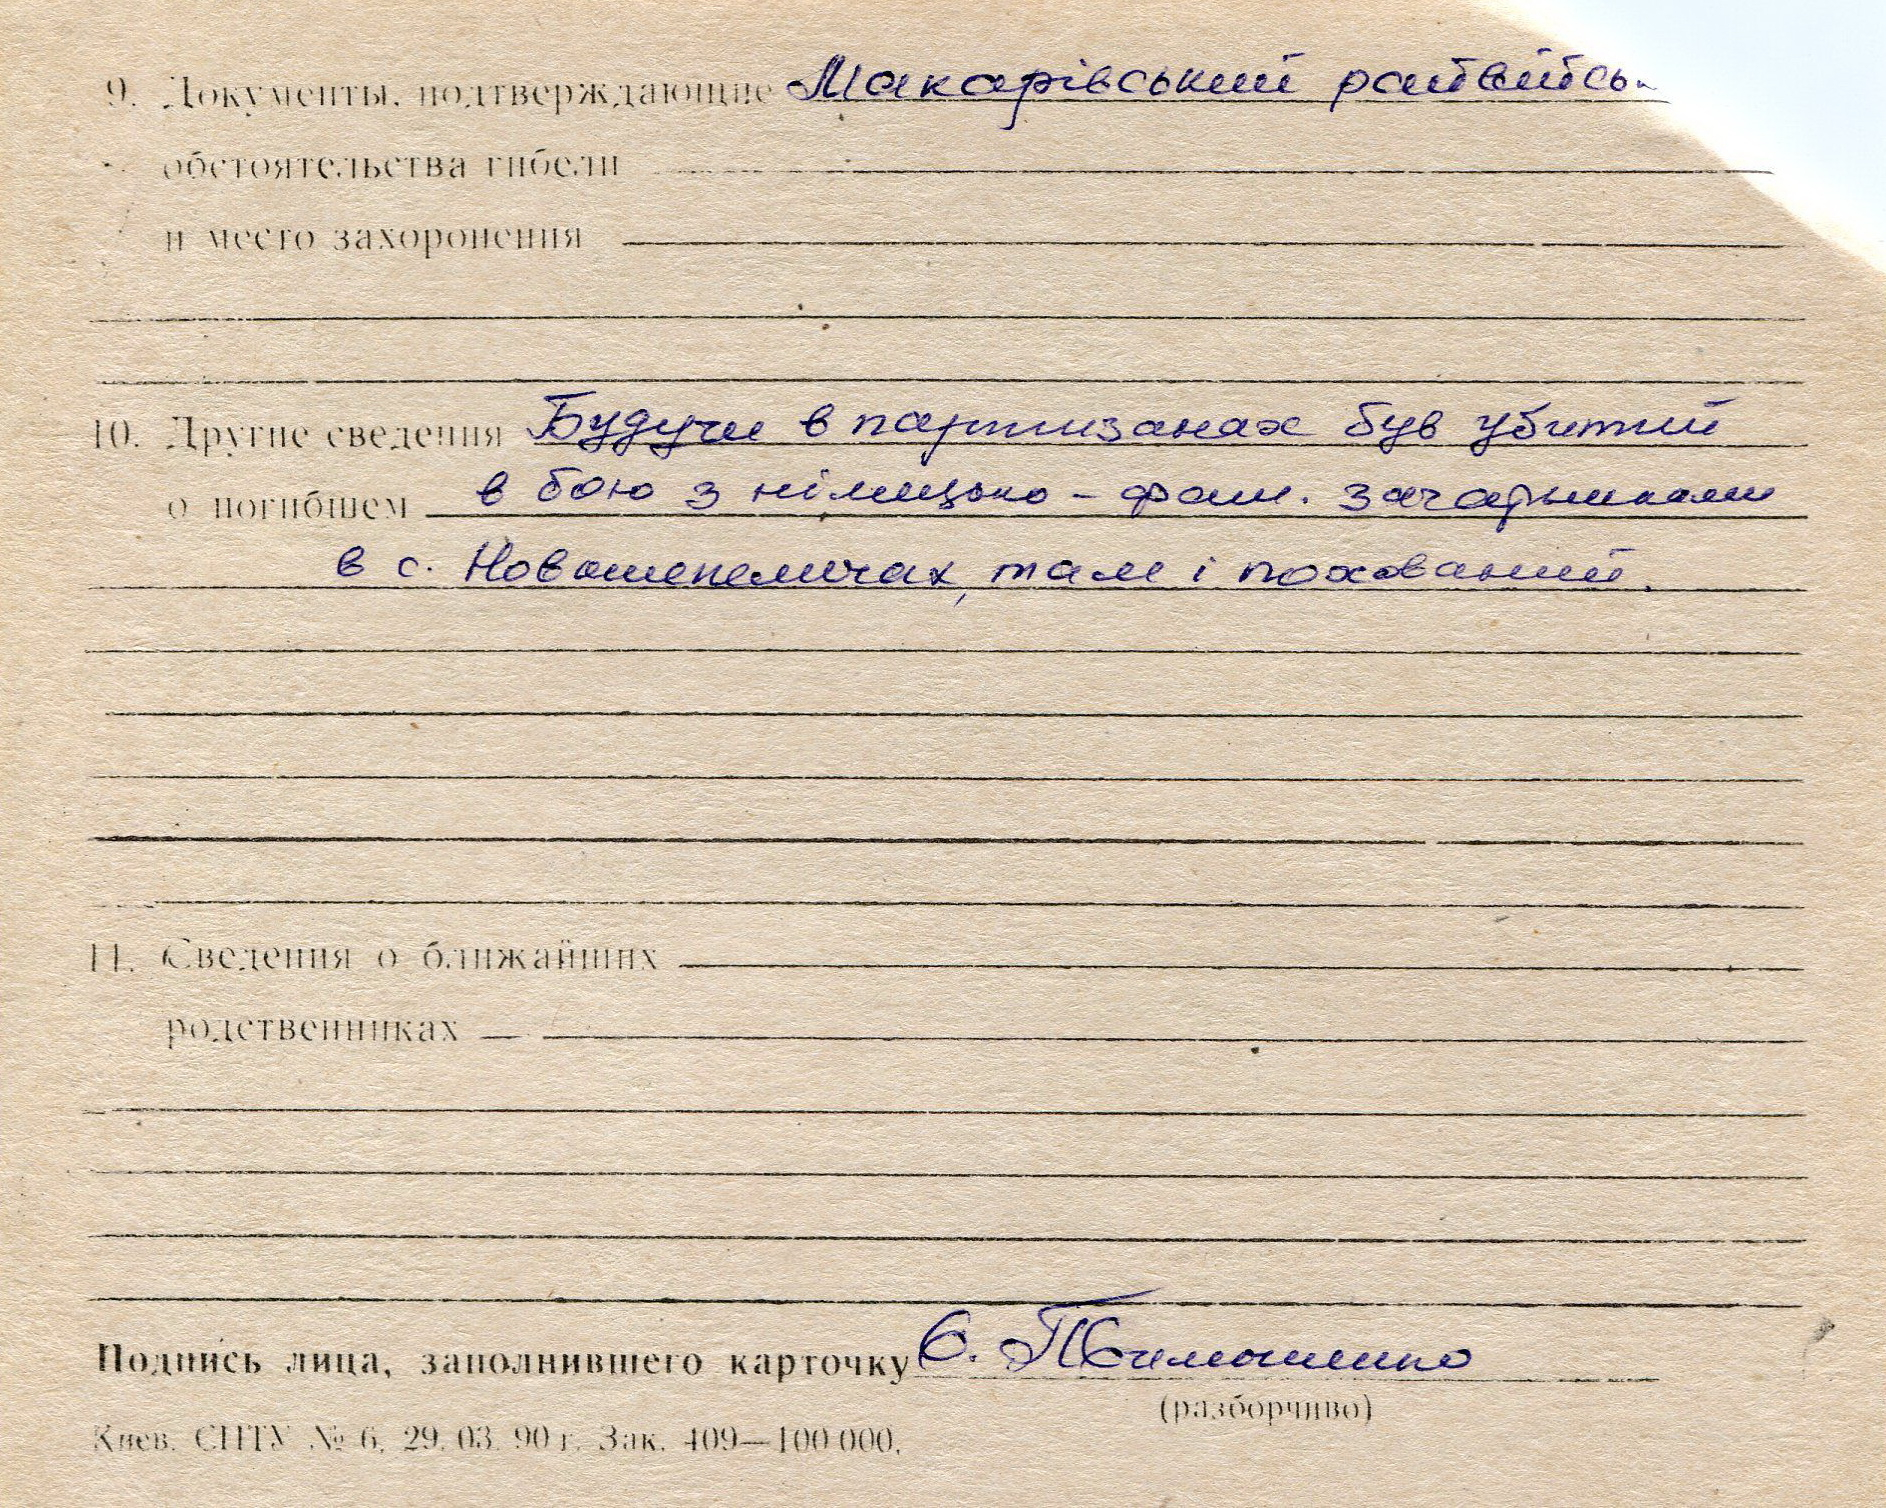 9. Документы, подтверждающие Макарівський райвійсь
обстоятельства гибели
и место захоронения
10. Другие сведения Будучи в партизанах був убитий
о погибшем в бою з німецько - фаш. загарниками
в с. Новошепеличах, там і похований.
11. Сведения о ближайших
родственниках
Подпись лица, заполнившего карточку Є.
(разборчиво)
Киев. СПТУ № 6. 29. 03. 90 г. Зак. 409—100 000.